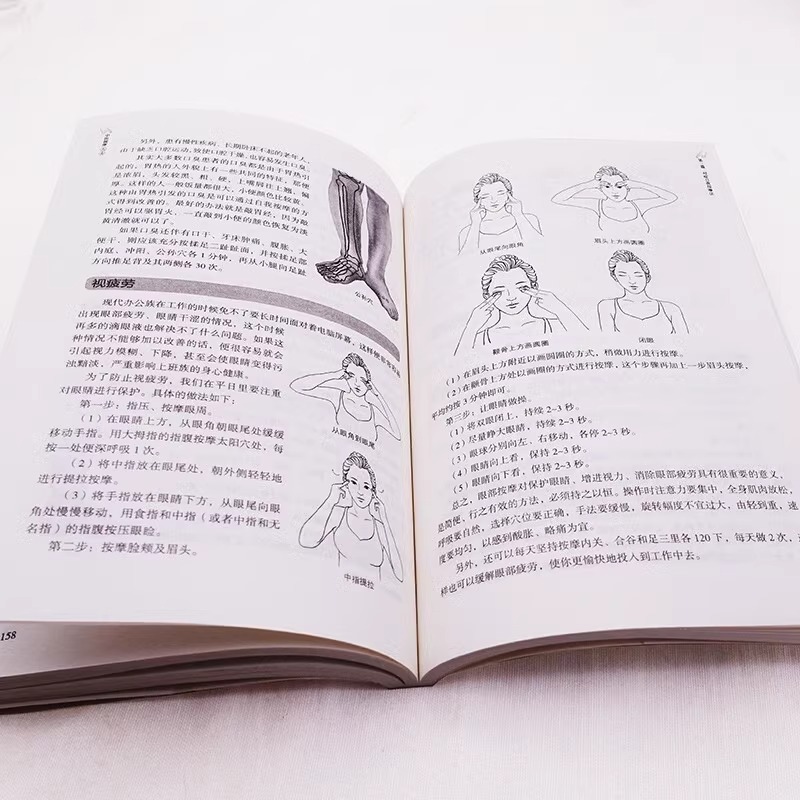 另外，患有慢性疾病、长期卧床不起的老年人，
由于缺乏口腔运动，致使口腔干燥，也容易发生口臭。
其实大多数口臭患者的口臭都是由于胃热引
起的，胃热的人外貌上有一些共同的特征，那便
是浓眉，头发较黑、粗、硬，上嘴唇往上翘，偏
厚。这样的人一般饭量都很大，小便颜色比较黄。
这种由胃热引发的口臭是可以通过自我按摩的方
式得到改善的。最好的办法就是敲胃经，因为敲
胃经可以驱胃火，一直敲到小便的颜色恢复为淡
黄清澈就可以了。
如果口臭还伴有口干、牙床肿痛、腹胀、大
便干，则应该充分按揉足二趾趾面，并按揉足部
内庭、冲阳、公孙穴各1分钟，再从小腿向足趾
方向推足背及其两侧各30次。
公孙穴
视疲劳
现代办公族在工作的时候免不了要长时间面对着电脑屏幕，这样便非常容易
出现眼部疲劳、眼睛干涩的情况，这个时候
再多的滴眼液也解决不了什么问题。如果这
种情况不能够加以改善的话，便很容易就会
引起视力模糊、下降，甚至会使眼睛变得污
浊黯淡，严重影响上班族的身心健康。
为了防止视疲劳，我们在平日里要注重
对眼睛进行保护。具体的做法如下：
第一步：指压、按摩眼周。
（1）在眼睛上方，从眼角朝眼尾处缓缓
移动手指。用大拇指的指腹按摩太阳穴处，每
按一处便深呼吸1次。
（2）将中指放在眼尾处，朝外侧轻轻地
进行提拉按摩。
（3）将手指放在眼睛下方，从眼尾向眼
角处慢慢移动，用食指和中指（或者中指和无
名指）的指腹按压眼睑。
第二步：按摩脸颊及眉头。
从眼角到眼尾
中指提拉
158
从眼尾向眼角
眉头上方画圆圈
颧骨上方画圆圈
闭眼
（1）在眉头上方附近以画圆圈的方式，稍微用力进行按摩。
（2）在颧骨上方处以画圈的方式进行按摩，这个步骤再加上一步眉头按摩，
平均约按3分钟即可。
第三步：让眼睛做操。
（1）将双眼闭上，持续2~3秒。
（2）尽量睁大眼睛，持续2~3秒。
（3）眼球分别向左、右移动，各停2~3秒。
（4）眼睛向上看，保持2~3秒。
（5）眼睛向下看，保持2~3秒。
总之，眼部按摩对保护眼睛、增进视力、消除眼部疲劳具有很重要的意义，
是简便、行之有效的方法，必须持之以恒。操作时注意力要集中，全身肌肉放松，
呼吸要自然，选择穴位要正确，手法要缓慢，旋转幅度不宜过大，由轻到重，速
度要均匀，以感到酸胀、略痛为宜。
另外，还可以每天坚持按摩内关、合谷和足三里各120下，每天做2次，这
样也可以缓解眼部疲劳，使你更愉快地投入到工作中去。